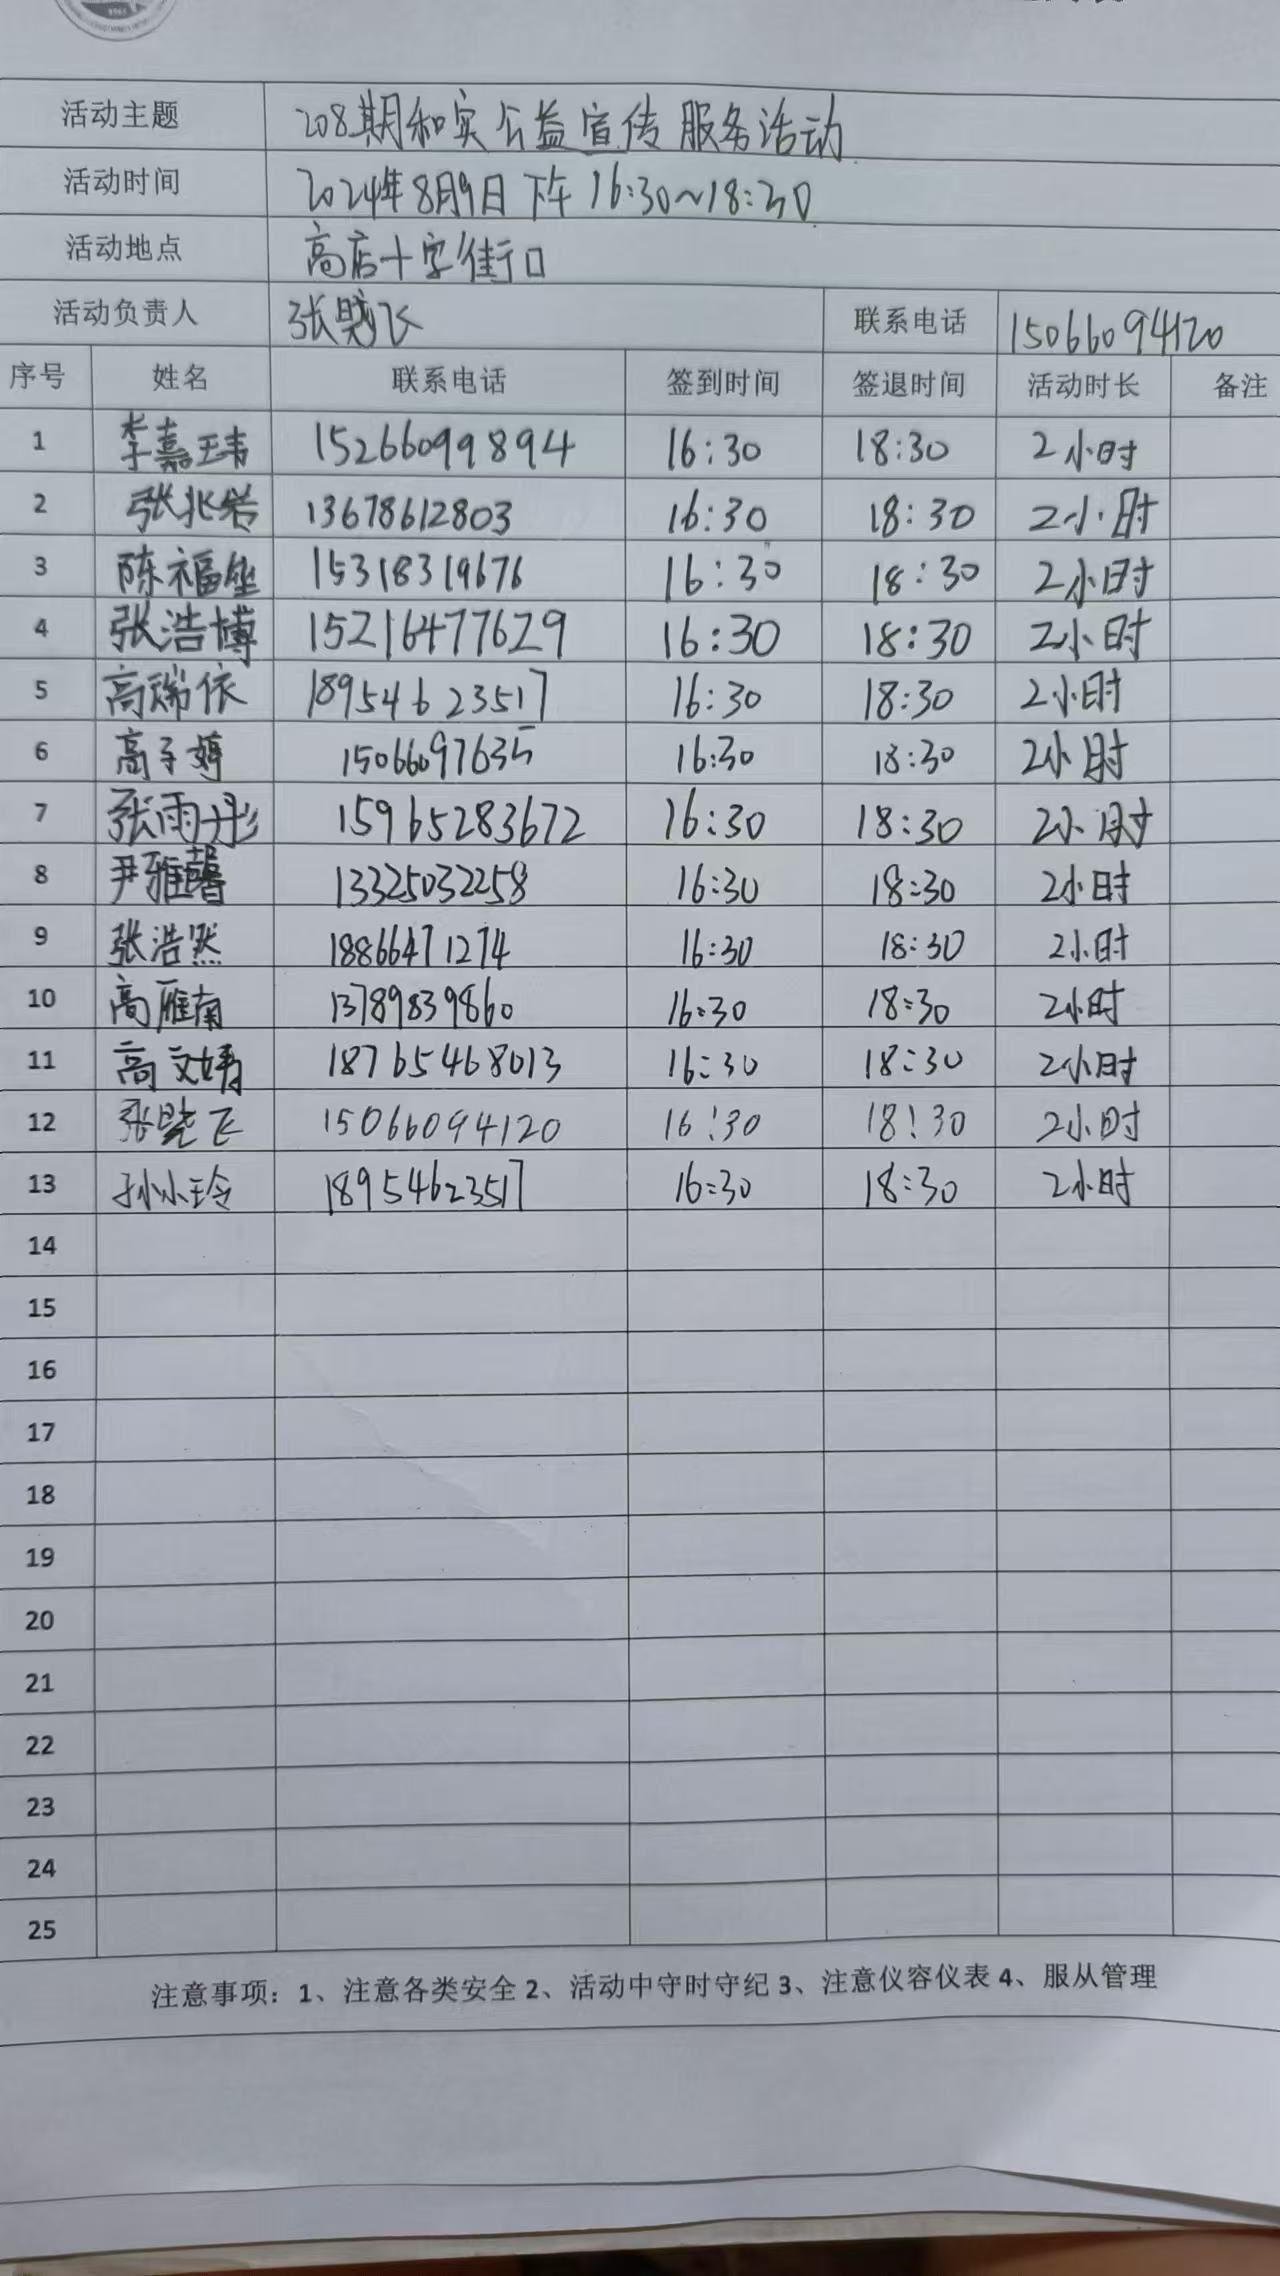 活动主题 208期和实公益宣传服务活动
活动时间 2024年8月9日下午16:30~18:30
活动地点 高店十字街口
活动负责人 张晓飞 联系电话 15066094120
序号 姓名 联系电话 签到时间 签退时间 活动时长 备注
1 李嘉玮 15266099894 16:30 18:30 2小时
2 张兆岩 13678612803 16:30 18:30 2小时
3 陈福坐 15318319676 16:30 18:30 2小时
4 张浩博 15216477629 16:30 18:30 2小时
5 高瑞依 18954623517 16:30 18:30 2小时
6 高子婷 15066097635 16:30 18:30 2小时
7 张雨彤 15965283672 16:30 18:30 2小时
8 尹雅馨 13325032258 16:30 18:30 2小时
9 张浩然 18866471274 16:30 18:30 2小时
10 高雁南 13789839860 16:30 18:30 2小时
11 高文婧 18765468013 16:30 18:30 2小时
12 张晓飞 15066094120 16:30 18:30 2小时
13 孙小玲 18954623517 16:30 18:30 2小时
14
15
16
17
18
19
20
21
22
23
24
25
注意事项：1、注意各类安全 2、活动中守时守纪 3、注意仪容仪表 4、服从管理